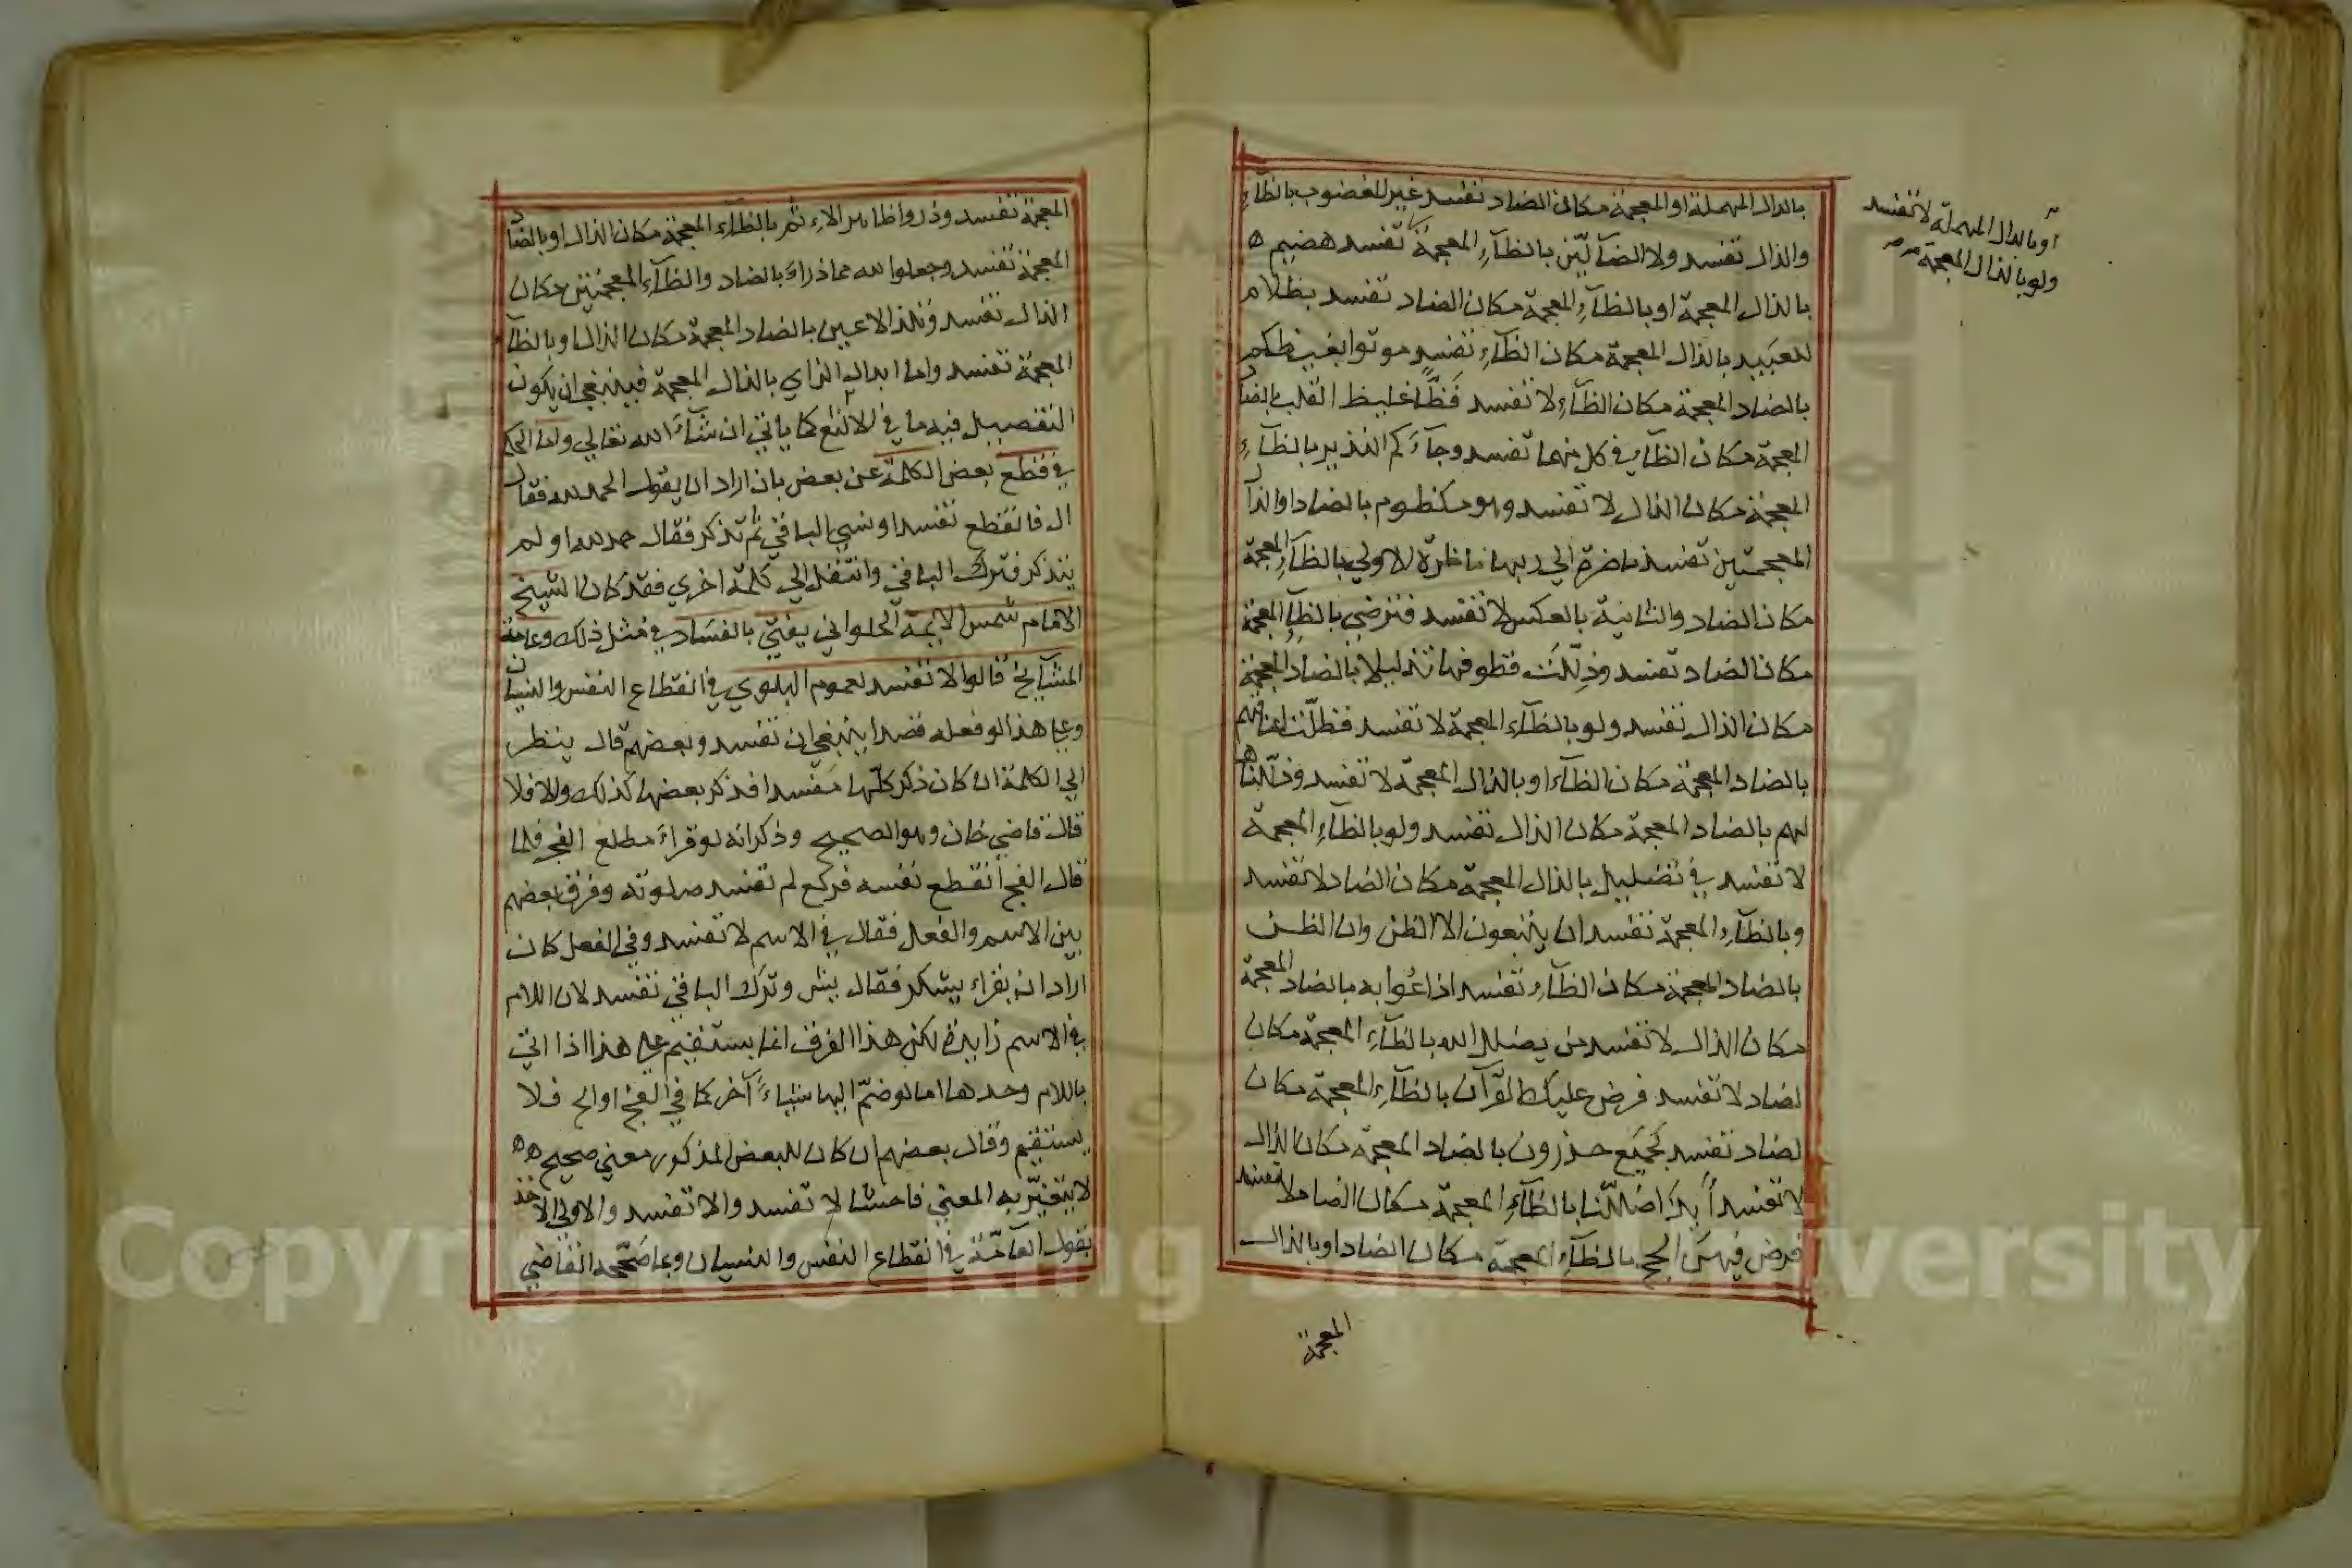 بالدال المهملة او المعجمة مكان الضاد تفسد غير المغضوب بالظآء
والذال تفسد ولا الضآلّين بالظآءِ المعجمة تفسد هضيم ه
بالذال المعجمة او بالظآءِ المعجمة مكان الضاد تفسد بظلام
للعبيد بالذال المعجمة مكان الظآءِ تفسد موتوا بغيظكم
بالضاد المعجمة مكان الظآءِ لا تفسد فظّا غليظ القلب بالضاد
المعجمة مكان الظآء في كل منهما تفسد وجآءَكم النذير بالظآءِ
المعجمة مكان الذال لا تفسد وهو مكظوم بالضاد او الذال
المعجمتين تفسد ناضرة الي ربها ناظرة الاولي بالظآءِ المعجمة
مكان الضاد والثانية بالعكس لا تفسد فترضي بالظآءِ المعجمة
مكان الضاد تفسد وذلّلت قطوفها تذليلا بالضاد المعجمة
مكان الذال تفسد ولو بالظآء المعجمة لا تفسد فظلّت اعناقهم
بالضاد المعجمة مكان الظآء او بالذال المعجمة لا تفسد وذلّلناها
لهم بالضاد المعجمة مكان الذال تفسد ولو بالظآءِ المعجمة
لا تفسد في تضليل بالذال المعجمة مكان الضاد لا تفسد
وبالظآءِ المعجمة تفسد ان يتبعون الا الظن وان الظن
بالضاد المعجمة مكان الظآءِ تفسد اذاعُوا به بالضاد المعجمة
مكان الذال لا تفسد من يضلل الله بالظآءِ المعجمة مكان
لضاد لا تفسد فرض عليك القرآن بالظآءِ المعجمة مكان
لضاد تفسد لجميع حذرون بالضاد المعجمة مكان الذال
لا تفسد أَئِذا ضللنا بالظآءِ المعجمة مكان الضاد لا تفسد
فرض فيهنّ الحج بالظآءِ المعجمة مكان الضاد او بالذال
المعجمة
او بالدال المهملة لا تفسد
ولو بالذال المعجمة
المعجمة تفسد وذروا ظاهر الاثم بالظآءِ المعجمة مكان الذال او بالضاد
المعجمة تفسد وجعلوا لله مما ذراءَ بالضاد والظآءِ المعجمتين مكان
الذال تفسد وتلذ الاعين بالضاد المعجمة مكان الذال او بالظآ
المعجمة تفسد واما ابدال الزاي بالذال المعجمة فينبغي ان يكون
التفصيل فيه ما في الالثغ كما ياتي ان شآءَ الله تعالي واما الحكم
في قطع بعض الكلمة عن بعض بان اراد ان يقول الحمد لله فقال
ال فانقطع نفسه او نسي الباقي ثم تذكر فقال حمد لله او لم
يتذكر فترك الباقي وانتقل الي كلمة اخري فقد كان الشيخ
الامام شمس الايمة الحلواني يفتي بالفساد في مثل ذلك وعامة
المشآيخ قالوا لا تفسد لعموم البلوي في انقطاع النفس والنسيان
وعلي هذا لو فعله قصدا ينبغي ان تفسد وبعضهم قال ينظر
الي الكلمة ان كان ذكر كلّها مفسدا فذكر بعضها كذلك والا فلا
قال قاضي خان وهو الصحيح وذكر انه لو قراءَ مطلع الفجر فلما
قال الفج انقطع نفسه فركع لم تفسد صلوته وفرق بعضهم
بين الاسم والفعل فقال في الاسم لا تفسد وفي الفعل كان
اراد ان يقراء يشكر فقال يش وترك الباقي تفسد لان اللام
في الاسم زايدة لكن هذا الفرق انما يستقيم علي هذا اذا اتي
باللام وحدها اما لو ضمّ اليها شياءً آخر كما في الفج او الح فلا
يستقيم وقال بعضهم ان كان للبعض المذكور معني صحيح هه
لا يتغيّر به المعني فاحشا لا تفسد والا تفسد والاولي الاخذ
بقول العآمّة في انقطاع النفس والنسيان وبما صَحّحه القاضي
Copyright © King Saud University